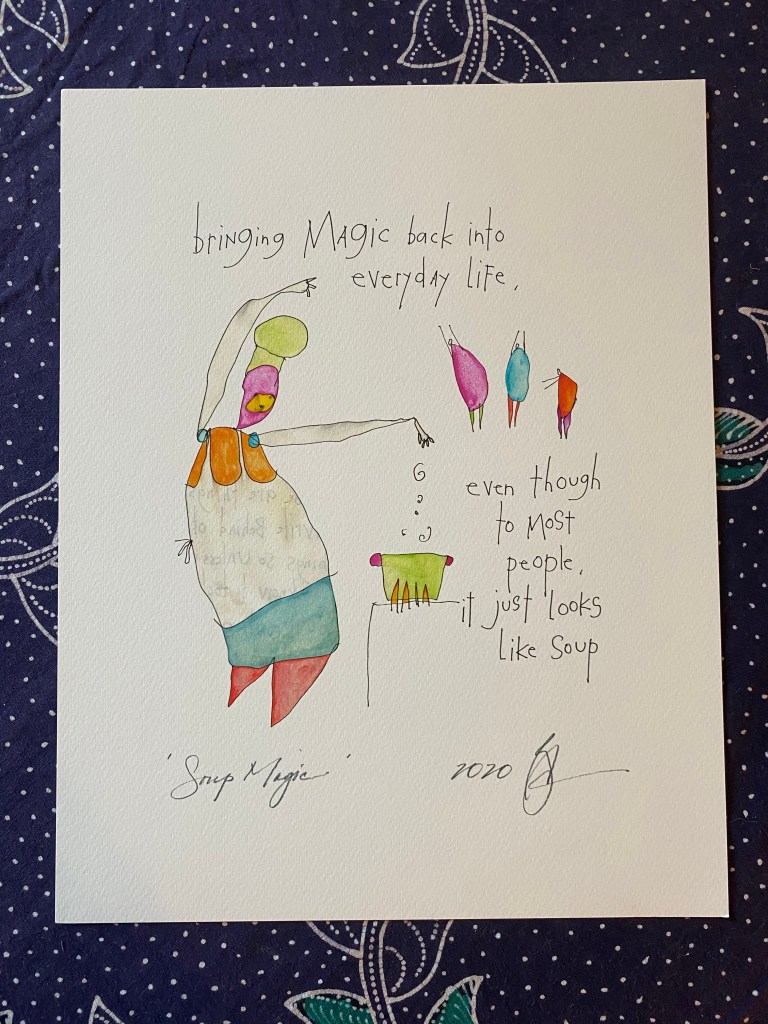 bringing MAgic back into
everyday life,
even though
to Most
people,
it just looks
like Soup
'Soup Magic'
2020